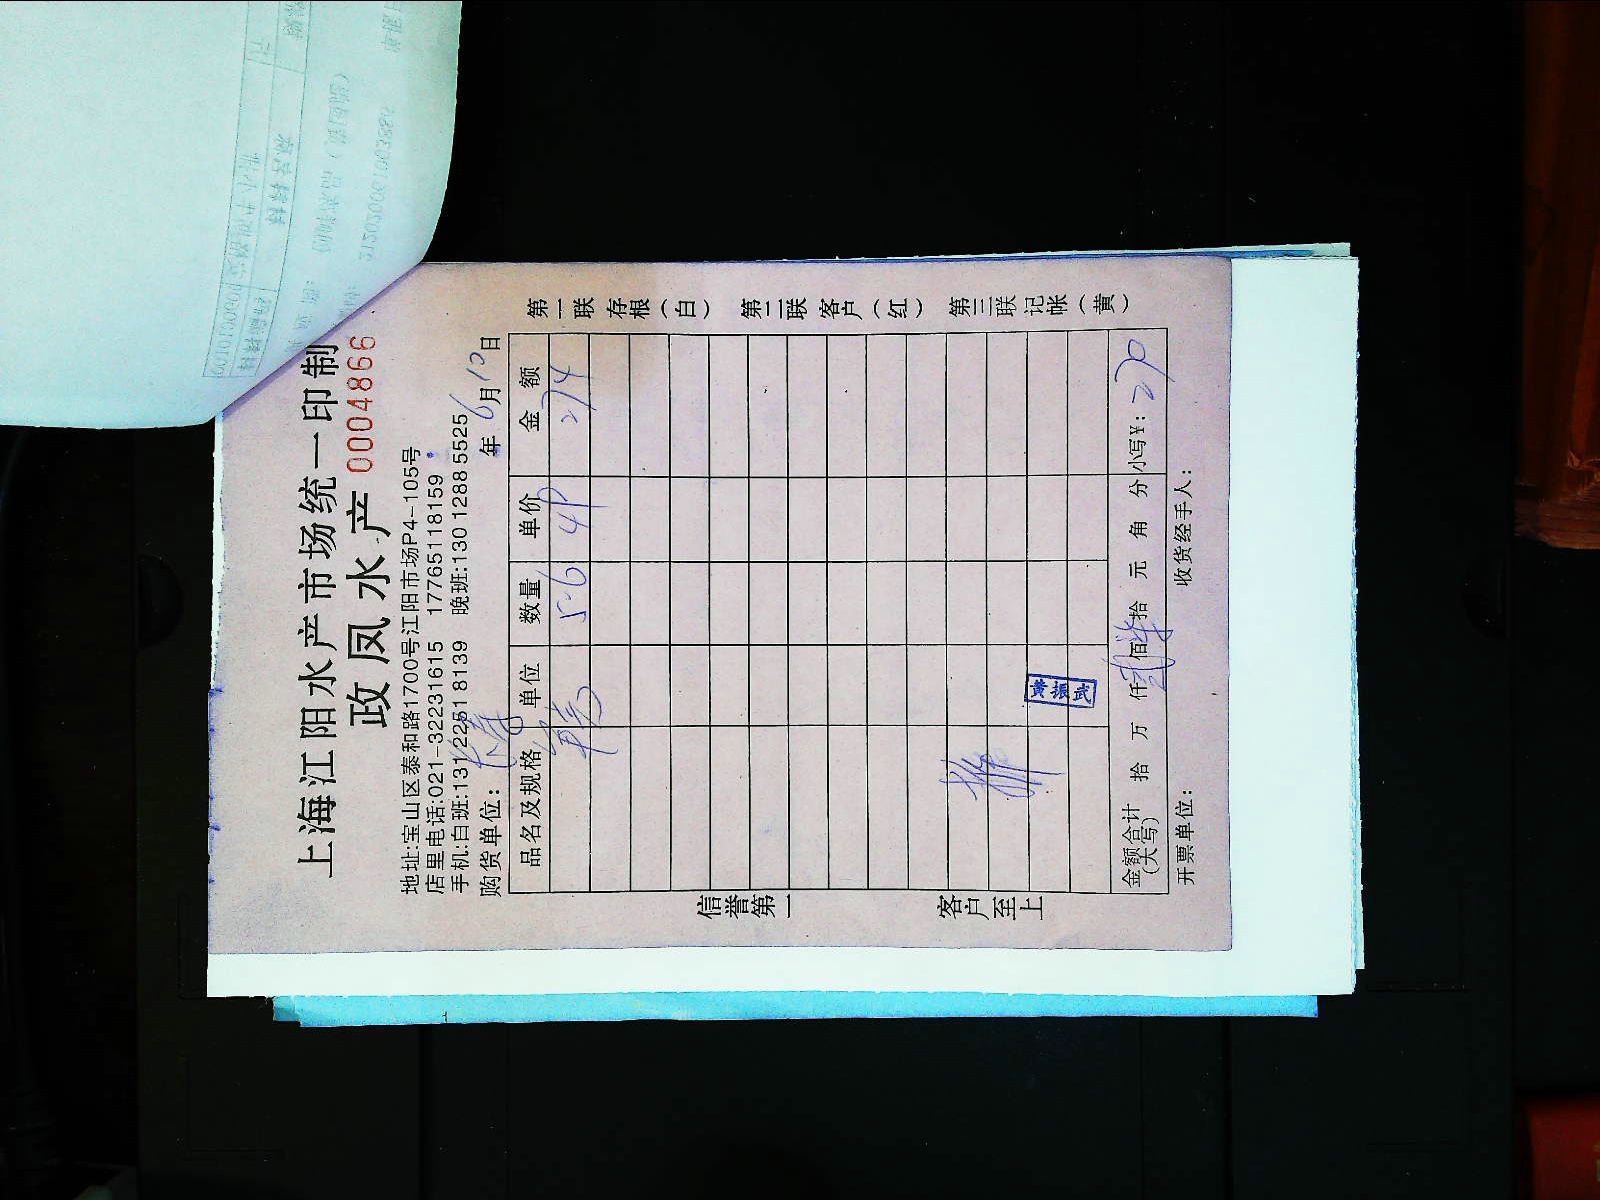 上海江阳水产市场统一印制
政凤水产 0004866
地址:宝山区泰和路1700号江阳市场P4-105号
店里电话:021-32231615 17765118159
手机:白班:131 2251 8139 晚班:130 1288 5525
购货单位: 年 6 月 10 日
品名及规格 单位 数量 单价 金额
5.6 49 274
黄振武
金额合计(大写) 拾 万 仟 贰 佰 柒 拾 元 角 分 小写¥: 270
开票单位: 收货经手人:
信誉第一 客户至上
第一联 存根(白) 第二联 客户(红) 第三联 记帐(黄)
212020061003886